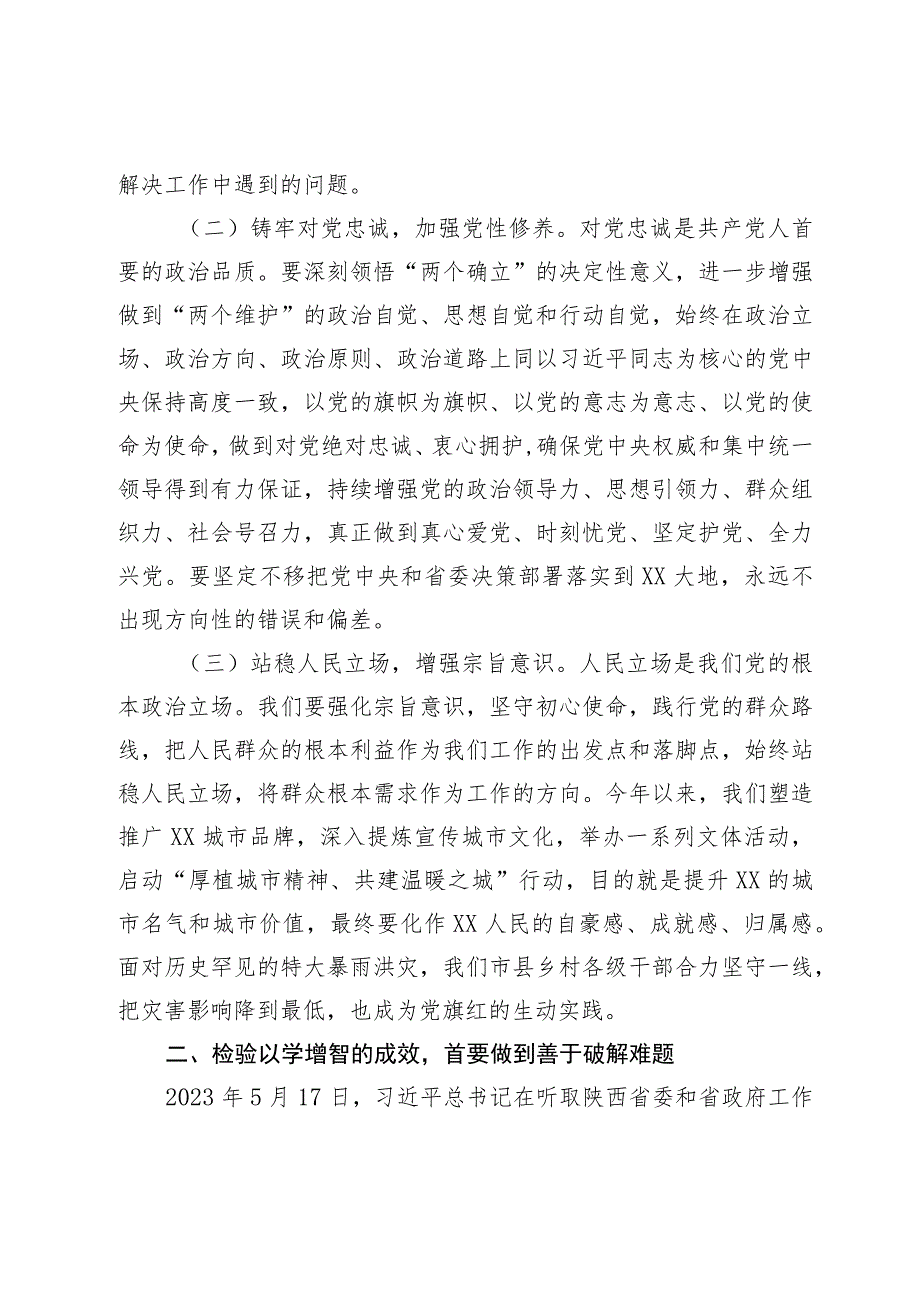 解决工作中遇到的问题。
（二）铸牢对党忠诚，加强党性修养。对党忠诚是共产党人首
要的政治品质。要深刻领悟“两个确立”的决定性意义，进一步增强
做到“两个维护”的政治自觉、思想自觉和行动自觉，始终在政治立
场、政治方向、政治原则、政治道路上同以习近平同志为核心的党中
央保持高度一致，以党的旗帜为旗帜、以党的意志为意志、以党的使
命为使命，做到对党绝对忠诚、衷心拥护,确保党中央权威和集中统一
领导得到有力保证，持续增强党的政治领导力、思想引领力、群众组
织力、社会号召力，真正做到真心爱党、时刻忧党、坚定护党、全力
兴党。要坚定不移把党中央和省委决策部署落实到 XX 大地，永远不
出现方向性的错误和偏差。
（三）站稳人民立场，增强宗旨意识。人民立场是我们党的根
本政治立场。我们要强化宗旨意识，坚守初心使命，践行党的群众路
线，把人民群众的根本利益作为我们工作的出发点和落脚点，始终站
稳人民立场，将群众根本需求作为工作的方向。今年以来，我们塑造
推广 XX 城市品牌，深入提炼宣传城市文化，举办一系列文体活动，
启动“厚植城市精神、共建温暖之城”行动，目的就是提升 XX 的城
市名气和城市价值，最终要化作 XX 人民的自豪感、成就感、归属感。
面对历史罕见的特大暴雨洪灾，我们市县乡村各级干部合力坚守一线，
把灾害影响降到最低，也成为党旗红的生动实践。
二、检验以学增智的成效，首要做到善于破解难题
2023 年 5 月 17 日，习近平总书记在听取陕西省委和省政府工作